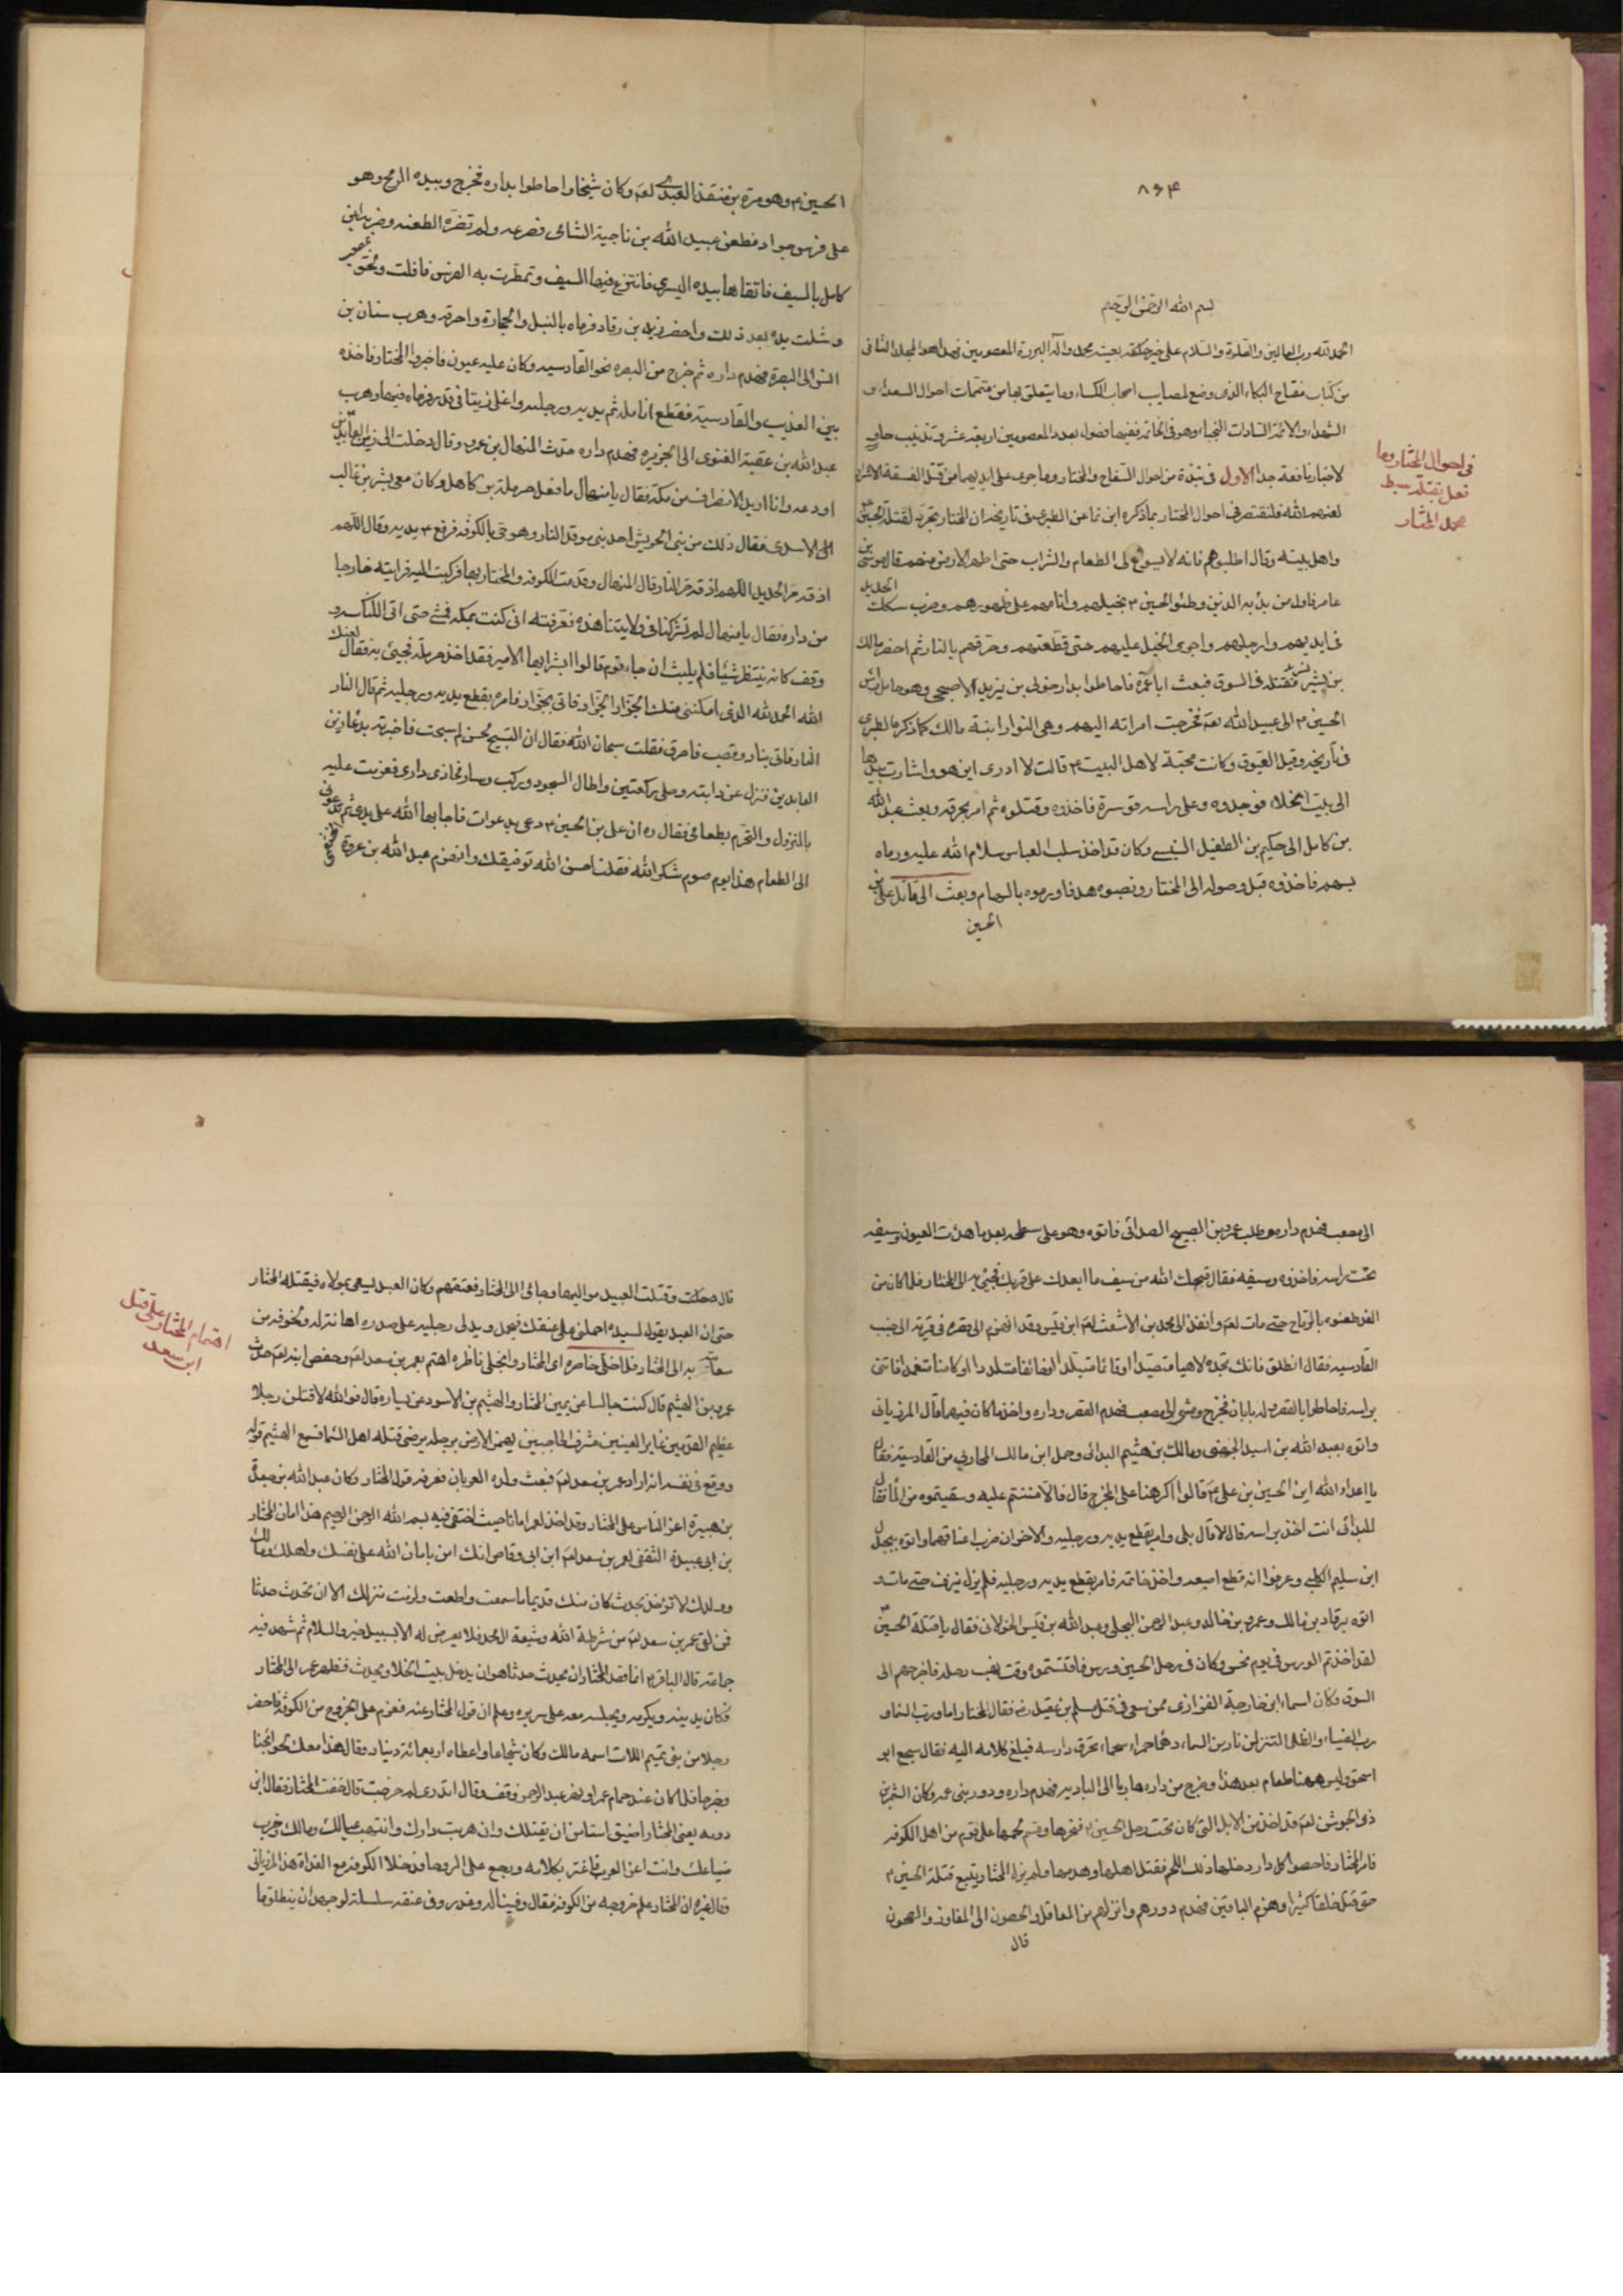 ٨۶۴
بسم الله الرحمن الرحيم
الحمد لله رب العالمين والصلوة والسلام على خير خلقه بعيثه محمد وآله البررة المعصومين فهذا هو المجلد الثانى
من كتاب مفتاح البكاء الذى وضع لمصايب اصحاب الكساء وما يتعلق بها من متممات احوال السعداء و
الشهداء والائمة السادات النجباء وهو فى الخاتمة ففيها فصول بعدد المعصومين اربعة عشر وتذنيب حاو
لاخبار نافعة جدا الاول فى نبذة من احوال السفاح والمختار وما جرى على ايديهما من قتل الفسقة الاشرار
لعنهم الله فلنقتصر فى احوال المختار بما ذكره ابن نما عن الطبرى فى تاريخه ان المختار تجرد لقتلة الحسين
واهل بيته وقال اطلبوهم فانه لا يسوغ لى الطعام والشراب حتى اطهر الارض منهم قال موسى بن
عامر فاول من بدء به الذين وطئوا الحسين ع بخيلهم وانامهم على ظهورهم وضرب سكك الحديد
فى ايديهم وارجلهم واجرى الخيل عليهم حتى قطعتهم وحرقهم بالنار ثم احضر مالك
بن بشير فقتله فى السوق فبعث ابا عمرة فاحاطوا بدار خولى بن يزيد الاصبحى وهو حامل راس
الحسين ع الى عبيد الله لعنه فخرجت امراته اليهم وهى النوار ابنة مالك كما ذكره الطبرى
فى تاريخه وقيل العيوق وكانت محبة لاهل البيت ع قالت لا ادرى اين هو واشارت بيدها
الى بيت الخلاء فوجدوه وعلى راسه قوسرة فاخذوه وقتلوه ثم امر بحرقه وبعث عبد الله
بن كامل الى حكيم بن الطفيل السنبسى وكان قد اخذ سلب العباس سلام الله عليه ورماه
بسهم فاخذوه قبل وصوله الى المختار ونصبوه هدفا ورموه بالسهام وبعث الى قاتل على بن
الحسين
فى احوال المختار وما
فعل بقتلة سبط
محمد المختار
الحسين ع وهو مرة بن منقذ العبدى لعنه وكان شيخا واحاطوا بداره فخرج وبيده الرمح وهو
على فرس جواد فطعن عبيد الله بن ناجية الشامى فصرعه ولم تضره الطعنة وضربه ابن
كامل بالسيف فاتقاها بيده اليسرى فانتزع فيها السيف وتمطرت به الفرس فافلت ولحق بمصعب
وشلت يده بعد ذلك واحضر زيد بن رقاد فرماه بالنبل والحجارة واحرقه وهرب سنان بن
انس الى البصرة فهدم داره ثم خرج من البصره نحو القادسيه وكان عليه عيون فاخبروا المختار فاخذه
بين العذيب والقادسية فقطع انامله ثم يديه ورجليه واغلى زيتا فى قدر ورماه فيها وهرب
عبد الله بن عقبة الغنوى الى الجزيره فهدم داره حدث المنهال بن عمرو قال دخلت الى زين العابدين
اودعه وانا اريد الانصراف من مكة فقال يا منهال ما فعل حرملة بن كاهل وكان معى بشر بن غالب
الاسدى فقال ذلك من بنى الحريش احد بنى موقد النار وهو حى بالكوفه فرفع ع يديه وقال اللهم
اذقه حر الحديد اللهم اذقه حر النار قال المنهال وقدمت الكوفه والمختار بها فركبت اليه فرايته خارجا
من داره فقال يا منهال لم تشركنا فى ولايتنا هذه فعرفته انى كنت بمكه فمشى حتى اتى الكناسه و
وقف كانه ينتظر شيئا فلم يلبث ان جاء قوم قالوا ابشر ايها الامير فقد اخذ حرملة فجيئ به فقال لعنك
الله الحمد لله الذى امكننى منك الجزار الجزار فاتى بجزار فامره بقطع يديه ورجليه ثم قال النار
النار فاتى بنار وقصب فاحرق فقلت سبحان الله فقال ان التسبيح لحسن لم سبحت فاخبرته بدعاء زين
العابدين فنزل عن دابته وصلى ركعتين واطال السجود وركب وسار فحاذى دارى فعزمت عليه
بالنزول والتحرم بطعامى فقال ره ان على بن الحسين ع دعى بدعوات فاجابها الله على يدى ثم تدعونى
الى الطعام هذا يوم صوم شكرا لله فقلت احسن الله توفيقك وانهزم عبد الله بن عروة الخثعمى
الى مصعب فهدم داره وطلب عمرو بن الصبيح الصدائى فاتوه وهو على سطحه بعد ما هدئت العيون وسيفه
تحت راسه فاخذوه وسيفه فقال قبحك الله من سيف ما ابعدك على قربك فجيئ به الى المختار فلما كان من
الغد طعنوه بالرماح حتى مات لعنه وانفذ الى محمد بن الاشعث لعنه ابن قيس وقد انهزم الى قصره فى قرية الى جنب
القادسيه فقال انطلق فانك تجده لاهيا متصيدا او قائما متلبدا او خائفا متلددا او كامنا متغمدا فاتنى
براسه فاحاطوا بالقصر وله بابان فخرج ومشى الى مصعب فهدم القصر وداره واخذ ما كان فيهما قال المرزبانى
واتوه بعبد الله بن اسيد الجهنى ومالك بن هثيم البدائى وحمل ابن مالك المحاربى من القادسية فقال
يا اعداء الله اين الحسين بن على ع قالوا اكرهنا على الخروج قال فالا مننتم عليه وسقيتموه من الماء فقال
للبدائى انت اخذ براسه قال لا قال بلى وامر بقطع يديه ورجليه والاخران ضرب اعناقهما واتوه ببجدل
ابن سليم الكلبى وعرفوا انه قطع اصبعه واخذ خاتمه فامر بقطع يديه ورجليه فلم يزل ينزف حتى مات و
اتوه برقاد بن مالك وعمرو بن خالد وعبد الرحمن البجلى وعبد الله بن قيس الخولانى فقال يا قتلة الحسين
لقد اخذتم الورس فى يوم نحس وكان فى رحل الحسين ورس فاقتسموه وقت نهب رحله فاخرجهم الى
السوق وكان اسماء ابن خارجة الفزارى ممن سعى فى قتل مسلم بن عقيل ره فقال المختار اما ورب السماء و
رب الضياء والظلماء لتنزلن نار من السماء دهماء حمراء سحماء تحرق دار اسماء فبلغ كلامه اليه فقال سجع ابو
اسحق وليس ههنا مقام بعد هذا وخرج من داره هاربا الى البادية فهدم داره ودور بنى عمه وكان الشمر بن
ذى الجوشن لعنه قد اخذ من الابل التى كان تحت رحل الحسين ع فنحرها وقسم لحمها على قوم من اهل الكوفه
فامر المختار فاحصوا كل دار دخلها ذلك اللحم فقتل اهلها وهدمها ولم يزل المختار يتتبع قتلة الحسين ع
حتى قتل خلقا كثيرا وهزم الباقين فهدم دورهم وانزلهم من المعاقل والحصون الى المفاوز والصحون
قال
قال وقتلت العبيد مواليها وجائى الى المختار فعتقهم وكان العبد يسعى بمولاه فيقتله المختار
حتى ان العبد يقول لسيده احملنى على عنقك فيحمله ويدلى رجليه على صدره اهانة له ولخوفه من
سعايته به الى المختار فلما خلى خاطره اى المختار وانجلى ناظره اهتم بعمر بن سعد لعنه وحفص ابنه لعنه حدث
عمر بن الهثيم قال كنت جالسا عن يمين المختار والهثيم بن الاسود عن يساره قال فوالله لاقتلن رجلا
عظيم القدمين غاير العينين مشرف الحاجبين يهمز الارض برجله يرضى قتله اهل السماء فسمع الهثيم قوله
ووقع فى نفسه انه اراد عمر بن سعد لعنه فبعث ولده العريان فعرفه قول المختار وكان عبد الله بن جعدة
بن هبيرة اعز الناس على المختار وقد اخذ لعمر امانا حيث اختفى فيه بسم الله الرحمن الرحيم هذا امان المختار
بن ابى عبيدة الثقفى لعمر بن سعد لعنه ابن ابى وقاص انك امن بامان الله على نفسك واهلك ومالك
وولدك لا تؤخذ بحدث كان منك قديما ما سمعت واطعت ولزمت منزلك الا ان تحدث حدثا
فمن لقى عمر بن سعد لعنه من شرطة الله وشيعة ال محمد فلا يعرض له الا بسبيل خير والسلام ثم شهد فيه
جماعة قال الباقر ع انما قصد المختار ان يحدث حدثا هو ان يدخل بيت الخلاء ويحدث فظهر عمر الى المختار
فكان يدينه ويكرمه ويجلسه معه على سريره وعلم ان قول المختار عنه فعزم على الخروج من الكوفة فاحضر
رجلا من بنى تميم اللات اسمه مالك وكان شجاعا واعطاه اربعمائة دينار وقال هذا معك لحوائجنا
وخرجا فلما كان عند حمام عمر او نهر عبد الرحمن وقف وقال اتدرى لم خرجت قال خفت المختار فقال ابن
دومه يعنى المختار اضيق استا من ان يقتلك وان هربت دارك وانتهب عيالك ومالك وخرب
ضياعك وانت اعز العرب فاغتر بكلامه ورجع على الروحا فدخلا الكوفة مع الغداة هذا المرزبانى
وقال غيره ان المختار علم خروجه من الكوفة فقال وفينا له وغدر وفى عنقه سلسلة لو جهد ان ينطلق ما
اهتمام المختار على قتل
ابن سعد